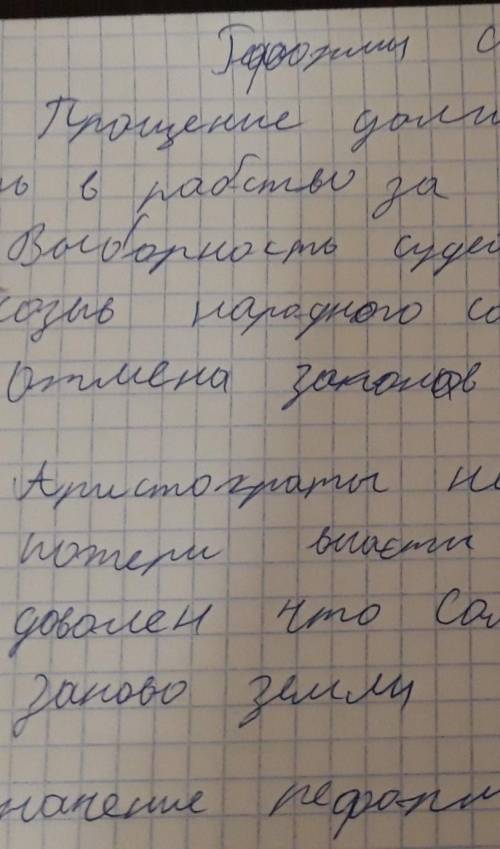 Реформы С
Прощение долг
ь в рабство за
Выборность судей
Созыв народного со
Отмена законов
Аристократы не
потери власти
доволен что Сол
заново землю
начение реформ